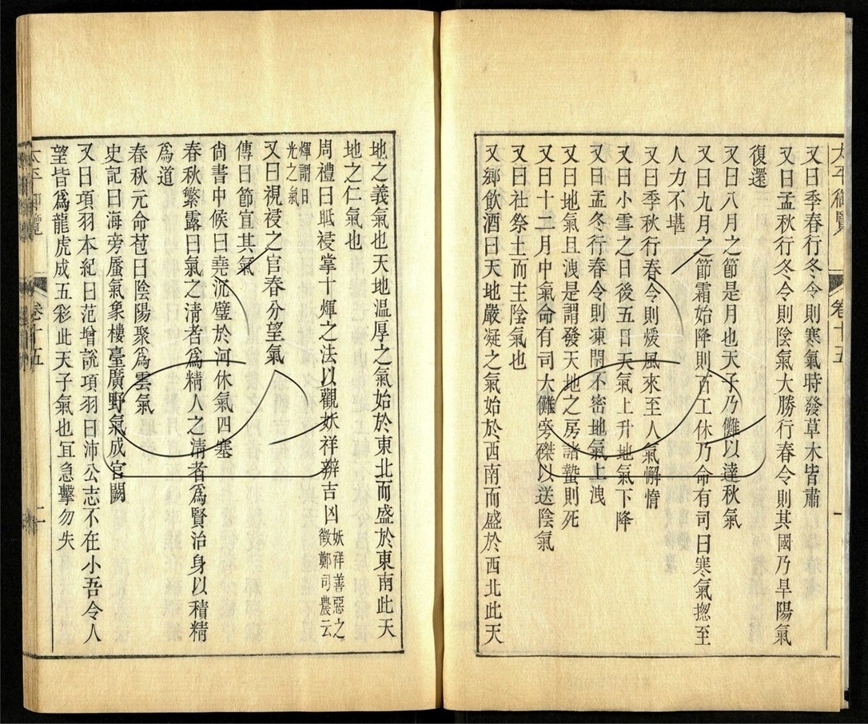 太平御覽 卷十五 一
又曰季春行冬令則寒氣時發草木皆肅
又曰孟秋行冬令則陰氣大勝行春令則其國乃旱陽氣
復還
又曰八月之節是月也天子乃儺以達秋氣
又曰九月之節霜始降則百工休乃命有司曰寒氣揔至
人力不堪
又曰季秋行春令則煖風來至人氣懈惰
又曰小雪之日後五日天氣上升地氣下降
又曰孟冬行春令則凍閉不密地氣上洩
又曰地氣且洩是謂發天地之房諸蟄則死
又曰十二月中氣命有司大儺旁磔以送陰氣
又曰社祭土而主陰氣也
又鄉飲酒曰天地嚴凝之氣始於西南而盛於西北此天
地之義氣也天地溫厚之氣始於東北而盛於東南此天
地之仁氣也
周禮曰眡祲掌十煇之法以觀妖祥辨吉凶妖祥善惡之
徵鄭司農云
煇謂日
光之氣
又曰視祲之官春分望氣
傳曰節宣其氣
尚書中候曰堯沉璧於河休氣四塞
春秋繁露曰氣之清者為精人之清者為賢治身以積精
為道
春秋元命苞曰陰陽聚為雲氣
史記曰海旁蜃氣象樓臺廣野氣成宮闕
又曰項羽本紀曰范增說項羽曰沛公志不在小吾令人
望皆為龍虎成五彩此天子氣也宜急擊勿失
太平御覽 卷十五 二